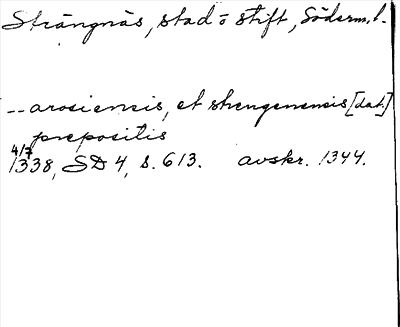 Strängnäs, stad o stift, Söderm. l.
-- arosiensis, et strengenensis [dat.]
prepositis
4/7
1338, SD 4, s. 613. avskr. 1344.